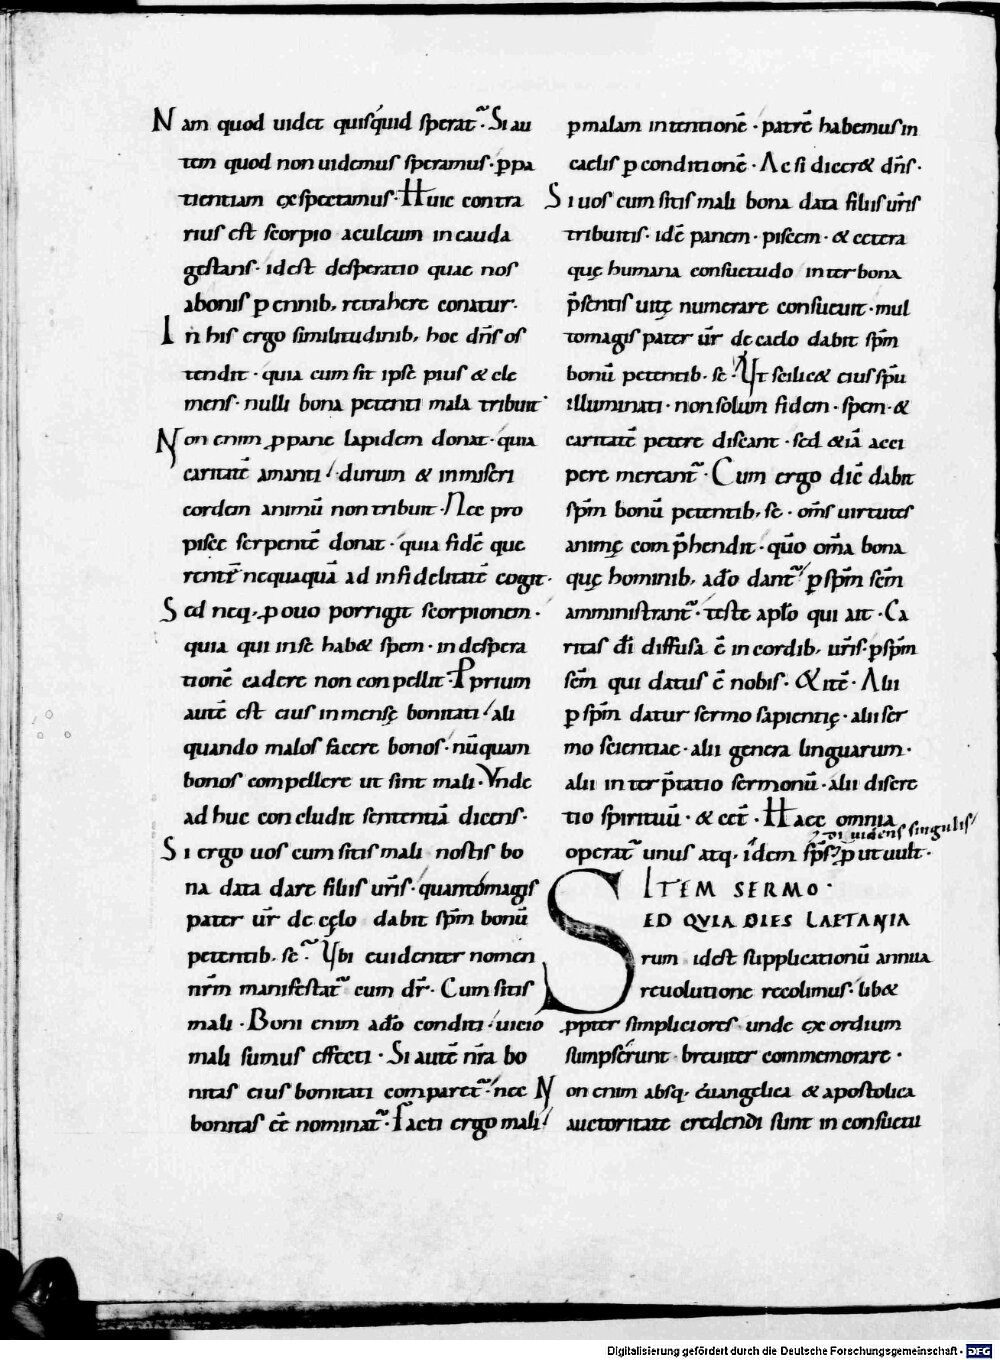 Nam quod uidet quisquid sperat̃· Si au
tem quod non uidemus speramus· ꝑ pa
tientiam exspectamus· Huic contra
rius est scorpio aculeum in cauda
gestans· idest desperatio quae nos
abonis ꝑennib; retrahere conatur·
In his ergo similitudinib; hoc dn̄s os
tendit· quia cum sit ipse pius & cle
mens· nulli bona petenti mala tribuit·
Non enim ꝓ pane lapidem donat· quia
caritatē amanti· durum & inmiseri
cordem animū non tribuit· Nec pro
pisce serpentē donat· quia fidē que
rentē nequaquā ad infidelitatē cogit·
Sed neq; ꝓ ouo porrigit scorpionem·
quia qui inse hab& spem· in despera
tionē cadere non conpellit· Pprium
autē est eius inmensę bonitati· ali
quando malos facere bonos· nūquam
bonos compellere ut sint mali· Vnde
ad huc concludit sententiā dicens·
Si ergo uos cum sitis mali nostis bo
na data dare filiis ur̄is· quantomagis
pater ur̄ de cęlo dabit sp̄m bonū
petentib; se· Ubi euidenter nomen
nr̄m manifestat̃ cum dr̄· Cum sitis
mali· Boni enim ad̄o conditi· uicio
mali sumus effecti· Si autē nr̄a bo
nitas eius bonitati comparet̃· nec
bonitas eē nominat̃· Facti ergo mali·
ꝑ malam intentionē· patrē habemus in
caelis ꝑ conditionē· Ac si dicer& dn̄s·
Si uos cum sitis mali bona data filiis ur̄is
tribuitis· idē panem· piscem· & cetera
quę humana consuetudo inter bona
p̄sentis uitę numerare consueuit· mul
tomagis pater ur̄ de caelo dabit sp̄m
bonū petentib; se· Ut scilic& eius sp̄u
illuminati· non solum fidem· spem· &
caritatē petere discant· sed &iā acci
pere mereant̃· Cum ergo diē dabit
sp̄m bonū petentib; se· om̄s uirtutes
animę comp̄hendit· quō om̄a bona
quę hominib; ad̄o dant̃· ꝑ sp̄m sc̄m
amministrant̃· teste apl̄o qui ait· Ca
ritas dī diffusa ē in cordib; ur̄is· ꝑ sp̄m
sc̄m qui datus ē nobis· & itē· Alii
ꝑ sp̄m datur sermo sapientię· alii ser
mo scientiae· alii genera linguarum·
alii interp̄tatio sermonū· alii discre
tio spirituū· & cet̄· Haec omnia
diuidens singulis
operat̃ unus atq; idem sp̄s· ꝓut uult·
ITEM SERMO·
SED QVIA DIES LAETANIA
rum idest supplicationū annua
reuolutione recolimus· lib&
ꝓpter simpliciores unde exordium
sumpserunt breuiter commemorare·
Non enim absq; euangelica & apostolica
auctoritate credendi sunt in consuetu
Digitalisierung gefördert durch die Deutsche Forschungsgemeinschaft - DFG